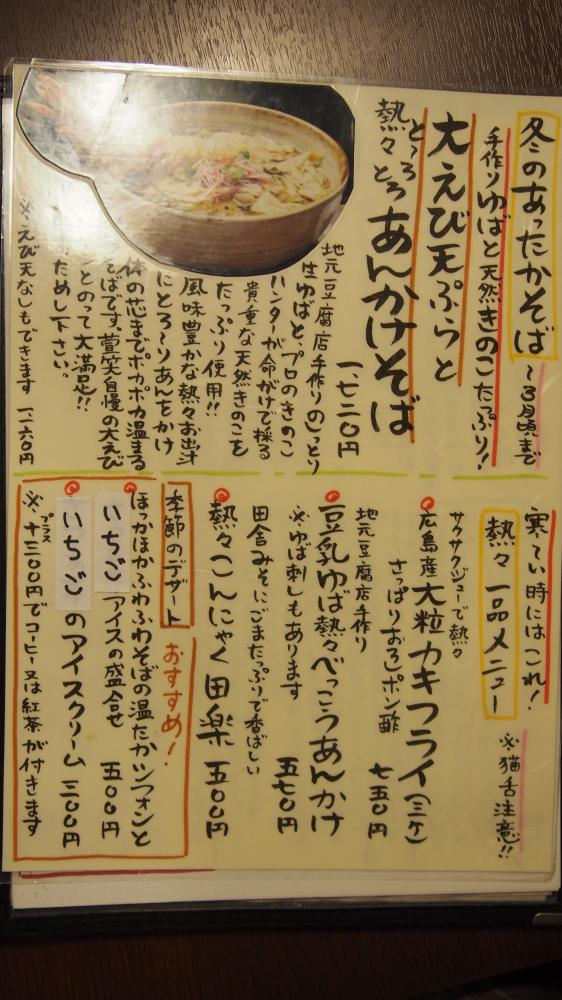 冬のあったかそば 〜3月頃まで
手作りゆばと天然きのこたっぷり!
大えび天ぷらと
熱々とろ〜とろ
あんかけそば
一、七二〇円
地元豆腐店手作りのこっとり
生ゆばと、プロのきのこ
ハンターが命がけで採る
貴重な天然きのこを
たっぷり使用!!
風味豊かな熱々お出汁
にとろ〜りあんをかけ
体の芯までポカポカ温まる
そばです。萱笑自慢の大えび
とのって大満足!!
おためし下さい。
※えび天なしもできます 一、一六〇円
寒〜い時にはこれ!
熱々一品メニュー
※猫舌注意!!
サクサクジューで熱々
広島産大粒カキフライ(三ケ)
さっぱりおろしポン酢
七五〇円
地元豆腐店手作り
豆乳ゆば熱々べっこうあんかけ
※ゆば刺しもあります
五七〇円
田舎みそにごまたっぷりで香ばしい
熱々こんにゃく田楽 五〇〇円
季節のデザート おすすめ!
ほっかほかふわふわそばの温たかシフォンと
いちごアイスの盛合せ 五〇〇円
いちごのアイスクリーム 三〇〇円
※プラス+三〇〇円でコーヒー又は紅茶が付きます